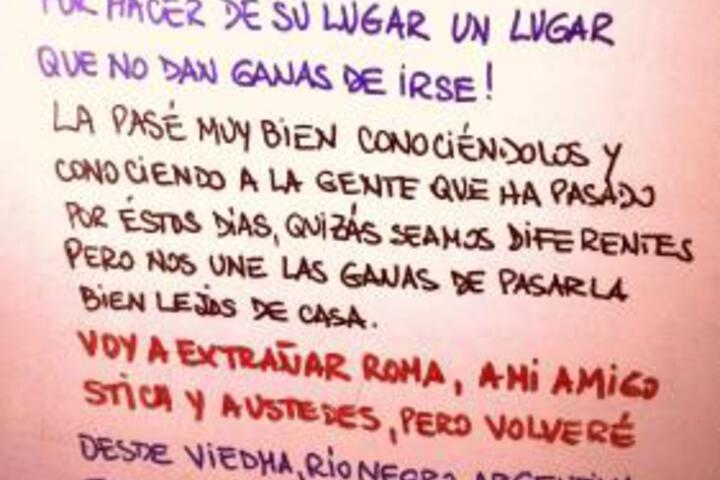 POR HACER DE SU LUGAR UN LUGAR
QUE NO DAN GANAS DE IRSE!
LA PASÉ MUY BIEN CONOCIÉNDOLOS Y
CONOCIENDO A LA GENTE QUE HA PASADO
POR ÉSTOS DÍAS, QUIZÁS SEAMOS DIFERENTES
PERO NOS UNE LAS GANAS DE PASARLA
BIEN LEJOS DE CASA.
VOY A EXTRAÑAR ROMA, A MI AMIGO
STICH Y A USTEDES, PERO VOLVERÉ
DESDE VIEDMA, RIO NEGRO, ARGENTINA